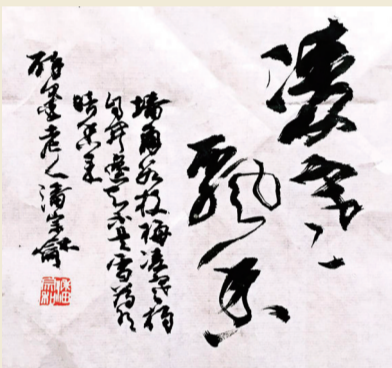 凌寒
飘香
墙角数枝梅凌寒独
自开遥知不是雪为有
暗香来
墨老人潘宗龢